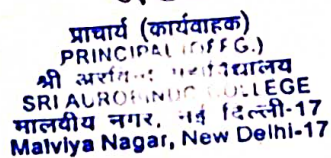 प्राचार्य (कार्यवाहक)
PRINCIPAL (OFFG.)
श्री
SRI AUROBINDO COLLEGE
मालवीय नगर, नई दिल्ली-17
Malviya Nagar, New Delhi-17